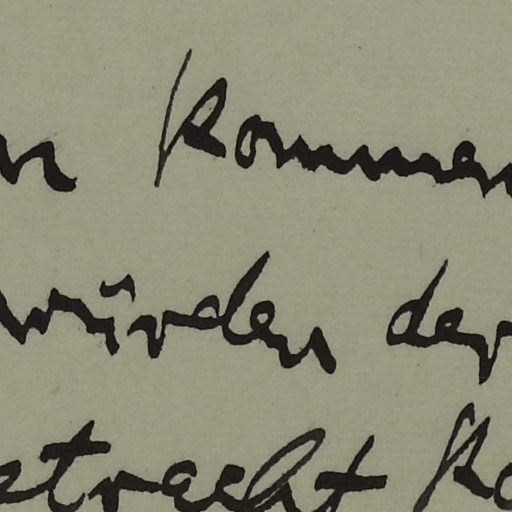 n kommen
würden der
etracht ko